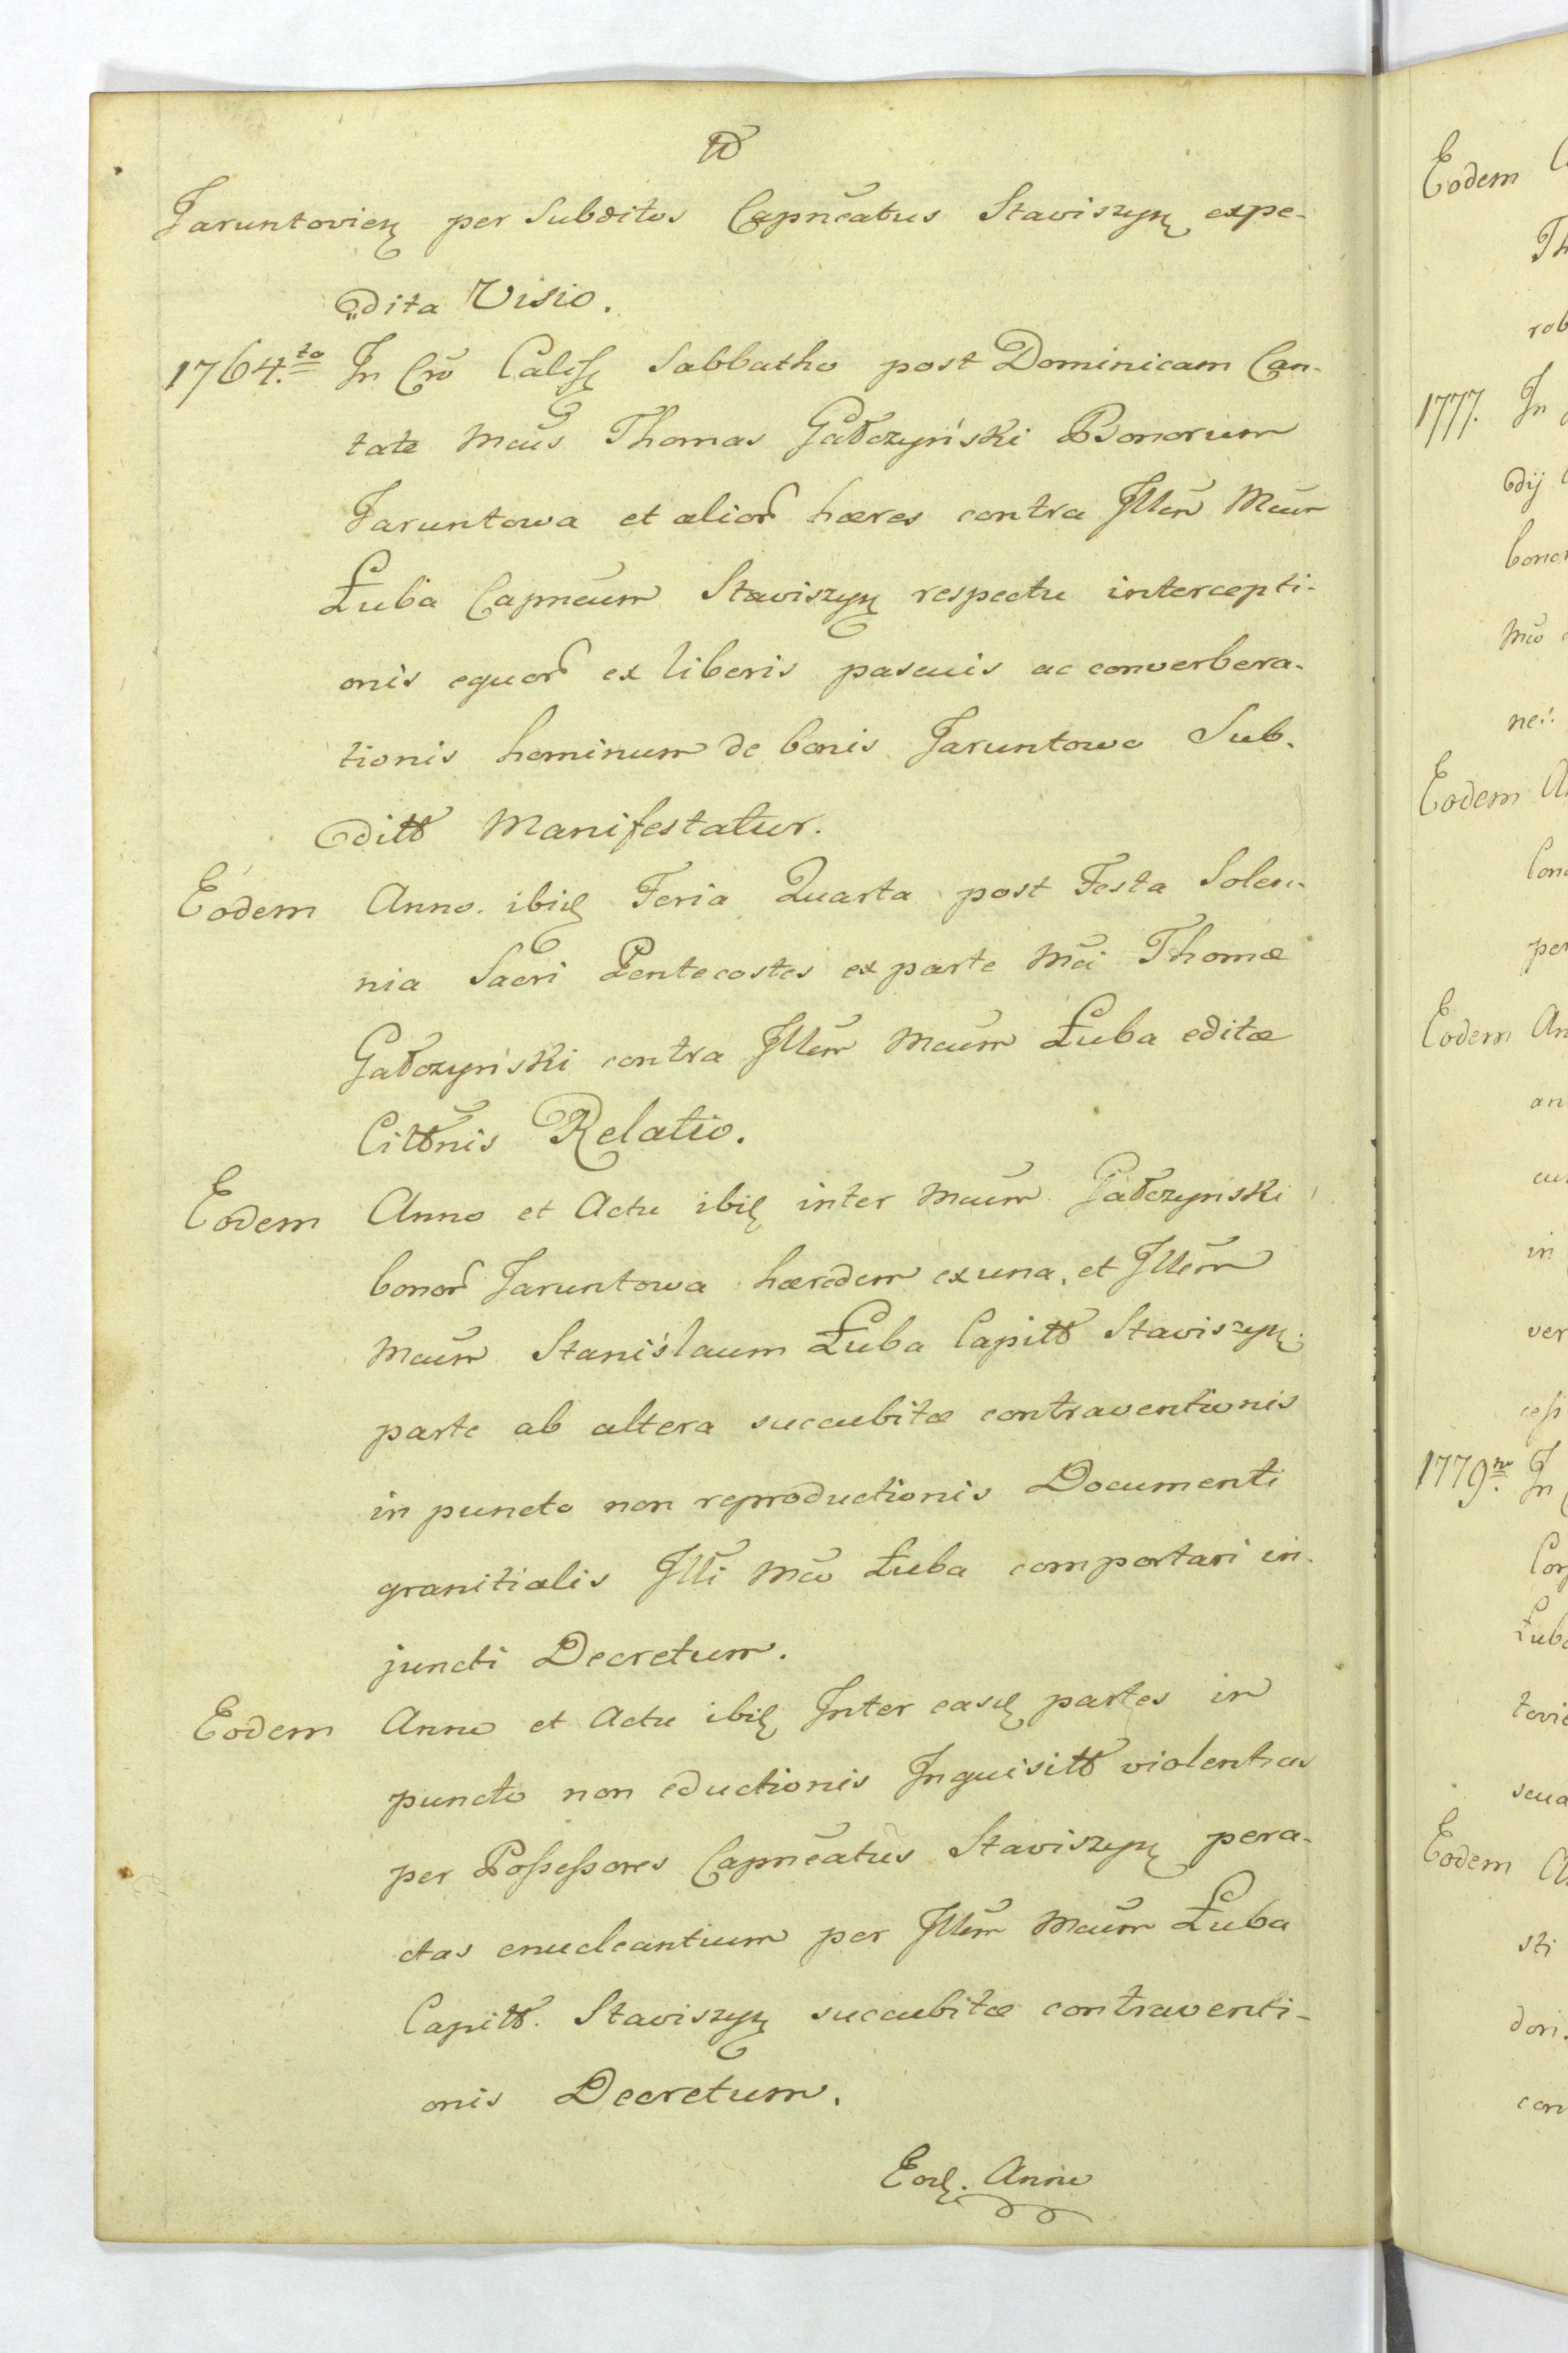 Jaruntovien per Subditos Capneatus Staviszyn expe-
dita Visio.
1764.to In Cro Calis Sabbatho post Dominicam Can-
tate Mcus Thomas Gałczyński Bonorum
Jaruntowa et alior hæres contra Illem Mcum
Łuba Capneum Staviszyn respectu intercepti-
onis equor ex liberis pascuis ac converbera-
tionis hominum de bonis Jaruntowo Sub-
ditt Manifestatur.
Eodem Anno ibid Feria Quarta post Festa Solen-
nia Sacri Pentecostes ex parte Mci Thomæ
Gałczyński contra Illem Mcum Łuba editæ
Cittnis Relatio.
Eodem Anno et Actu ibid inter Mcum Gałczyński
bonor Jaruntowa hæredem ex una, et Illem
Mcum Stanislaum Łuba Capitt Staviszyn
parte ab altera succubitæ contraventionis
in puncto non reproductionis Documenti
granitialis Illi Mco Łuba comportari in-
juncti Decretum.
Eodem Anno et Actu ibid Inter easd partes in
puncto non eductionis Inquisitt violentias
per Possessores Capneatus Staviszyn pera-
ctas enucleantium per Illem Mcum Łuba
Capitt. Staviszyn succubitæ contraventi-
onis Decretum.
Eod. Anno
Eodem
Th
rob
1777. In
dij
bonor
Mco
ne:
Eodem
per
Eodem An
an
cum
in
ver
cessi
1779.no In
Łuba
tovie
scua
Eodem
sti
dori
con